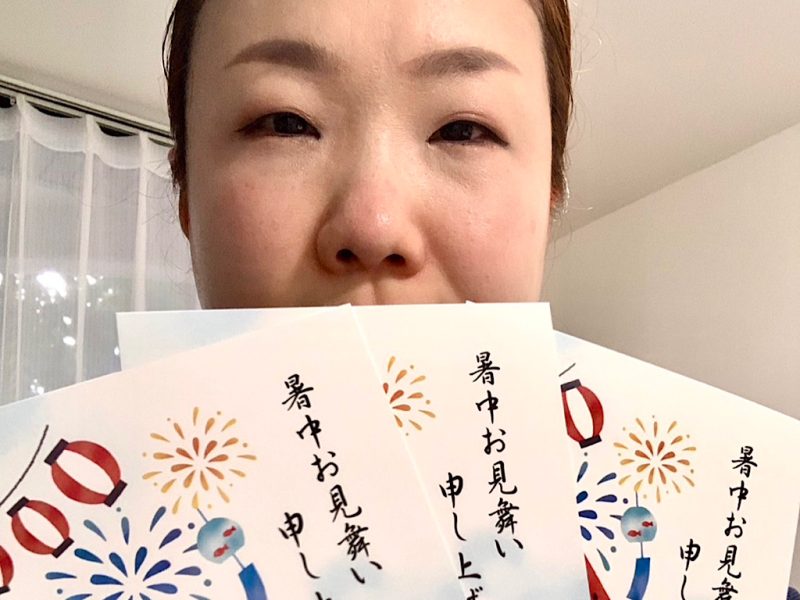 暑中お見舞い
申し上
暑中お見舞い
申し上げ
暑中お見舞
申し